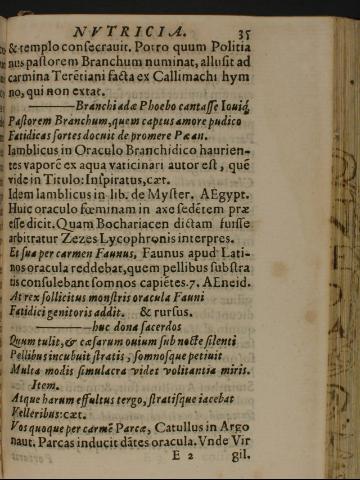 NVTRICIA. 35
& templo consecrauit. Porro quum Politia
nus pastorem Branchum numinat, allusit ad
carmina Terētiani facta ex Callimachi hym
no, qui non extat.
Branchiadæ Phoebo cantasse Iouiq́;
Pastorem Branchum, quem captus amore pudico
Fatidicas sortes docuit de promere Pæan.
Iamblicus in Oraculo Branchidico haurien-
tes vaporē ex aqua vaticinari autor est, quē
vide in Titulo: Inspiratus, cæt.
Idem Iamblicus in lib. de Myster. AEgypt.
Huic oraculo fœminam in axe sedētem præ
esse dicit. Quam Bochariacen dictam fuisse
arbitratur Zezes Lycophronis interpres.
Et sua per carmen Faunus, Faunus apud Lati-
nos oracula reddebat, quem pellibus substra
tis consulebant somnos capiētes. 7. AEneid.
At rex sollicitus monstris oracula Fauni
Fatidici genitoris addit. & rursus.
huc dona sacerdos
Quum tulit, & cæsarum ouium sub nocte silenti
Pellibus incubuit stratis, somnosque petiuit
Multa modis simulacra videt volitantia miris.
Item.
Atque harum effultus tergo, stratisque iacebat
Velleribus: cæt.
Vos quoque per carmē Parcæ, Catullus in Argo
naut. Parcas inducit dātes oracula. Vnde Vir
E 2 gil.